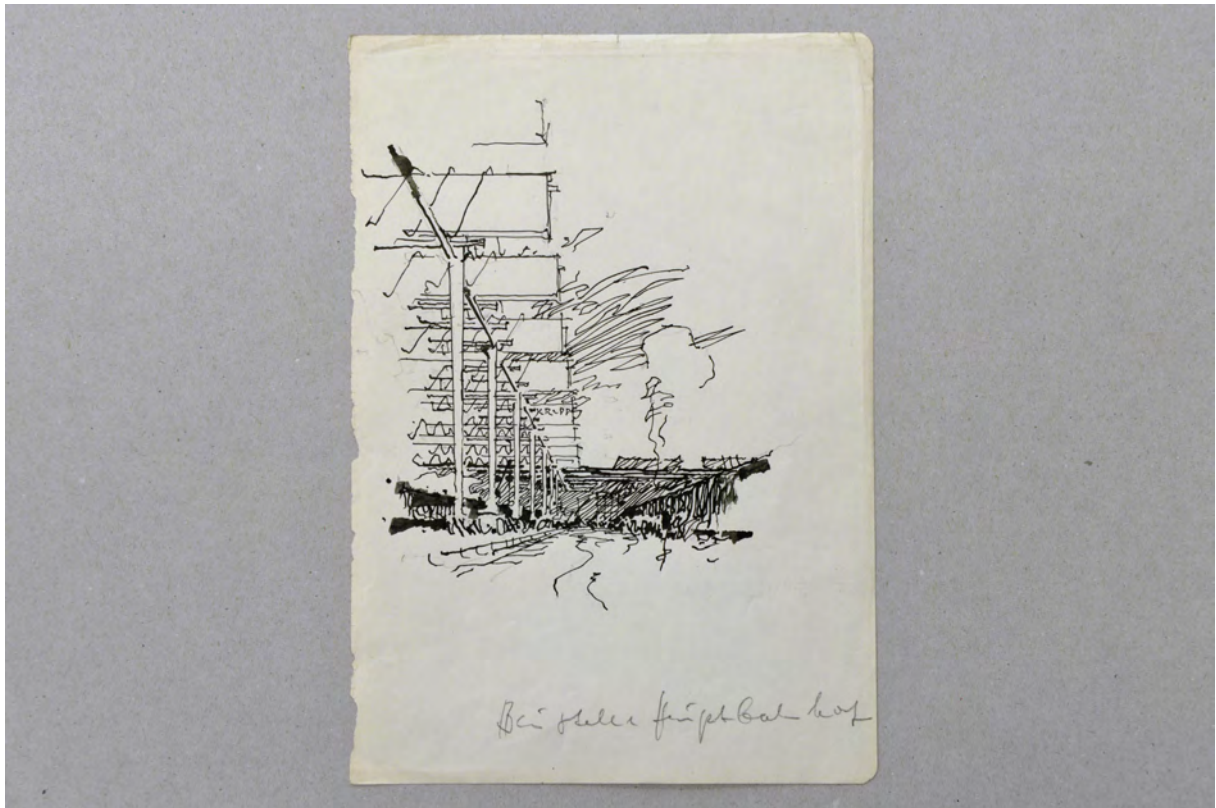 KRUPP
Baustelle Hauptbahnhof